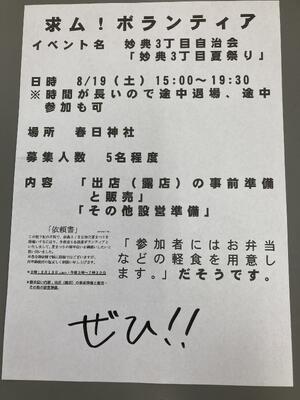 求ム！ボランティア
イベント名 妙典3丁目自治会
「妙典3丁目夏祭り」
日時 8/19（土）15:00～19:30
※時間が長いので途中退場、途中
参加も可
場所 春日神社
募集人数 5名程度
内容 「出店（露店）の事前準備
と販売」
「その他設営準備」
「依頼書」
「参加者にはお弁当
などの軽食を用意し
ます。」だそうです。
ぜひ!!